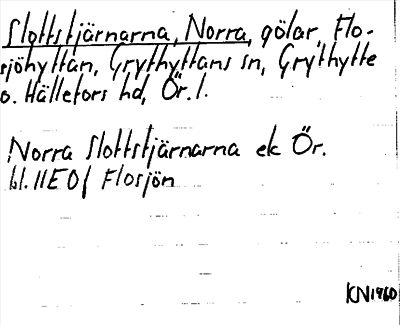 Slottstjärnarna, Norra, gölar, Flo-
sjöhyttan, Grythyttans sn, Grythytte
o. Hällefors hd, Ör. l.
Norra Slottstjärnarna ek Ör.
bl. 11E0f Flosjön
KN1960